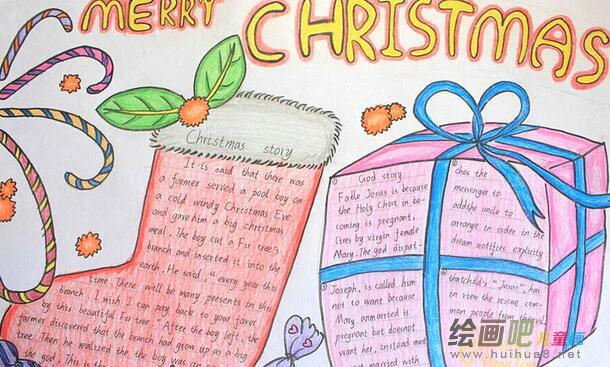 MERRY CHRISTMAS
Christmas story
It is said that there was
a farmer served a pool boy on
a cold windy Christmas Eve
and gave him a big christmas
meal. The boy cut a Fir tree's
branch and inserted it into the
earth. He said "every year this
time. There will be many presents in this
branch. I wish I can pay back to your favor
by this beautiful Fir tree." After the boy left, the
farmer discovered that the branch had grown up as a big
tree. Then he realized the the boy was an
the god. This is the
① God story
Fable Jesus is because
the Holy Ghost in be-
coming is pregnant,
lies by virgin female
Mary. The god dispat-
② chos the
messenger to
addthe uncle to
arrange in order in the
dream notifies explicitly
③ Joseph, is called him
not to want because
Mary unmarried is
pregnant but doesnot
want her, instead must
get married with
④ thatchild's "Jesus", has
in view the rescue com-
mon people from
绘画吧 儿童画
www.huihua8.net